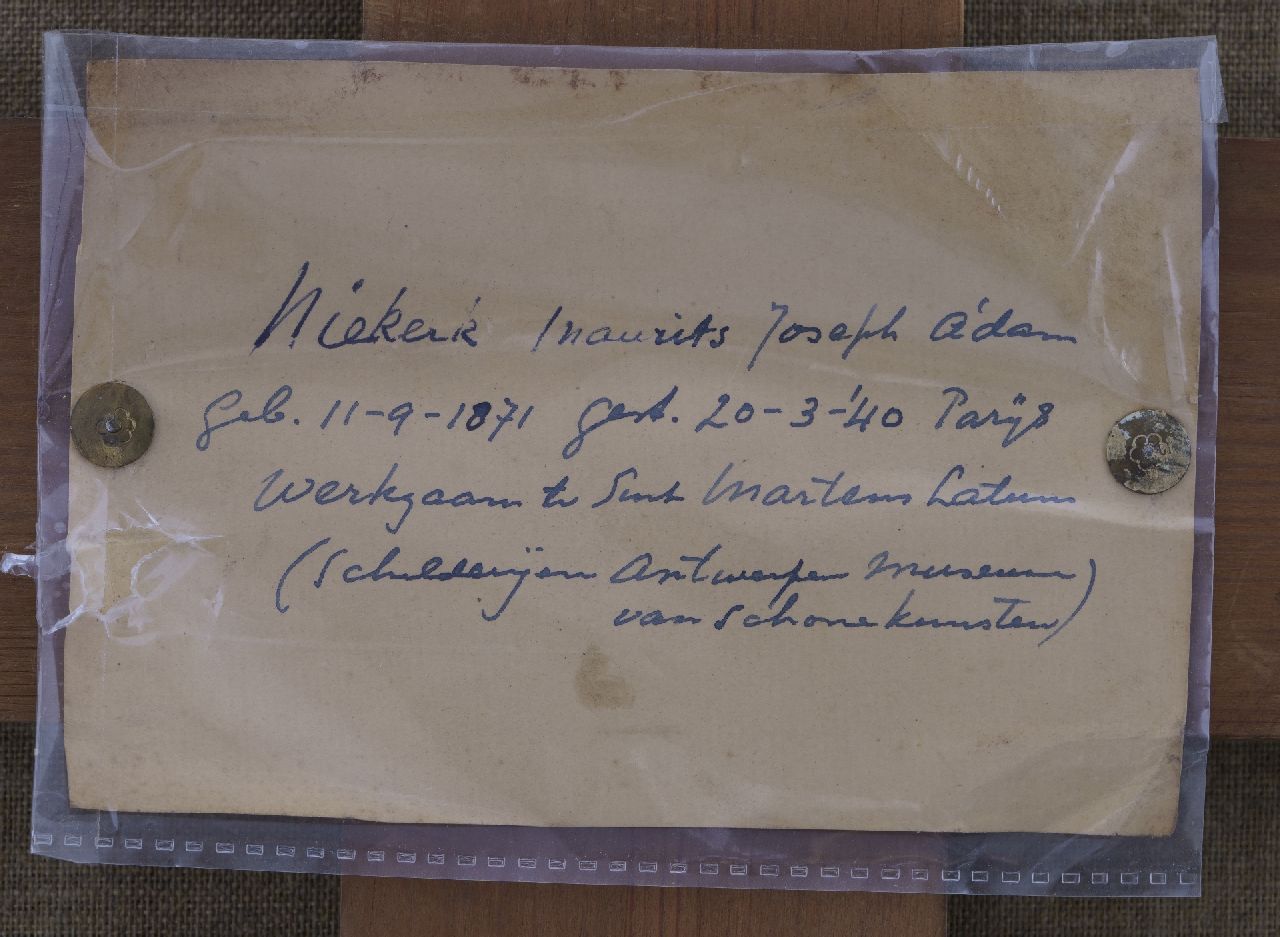 Niekerk Maurits Joseph A'dam
geb. 11-9-1871 gest. 20-3-'40 Parijs
Werkzaam te Sint Martens Latem
(Schilderijen Antwerpen Museum
van Schone kunsten)